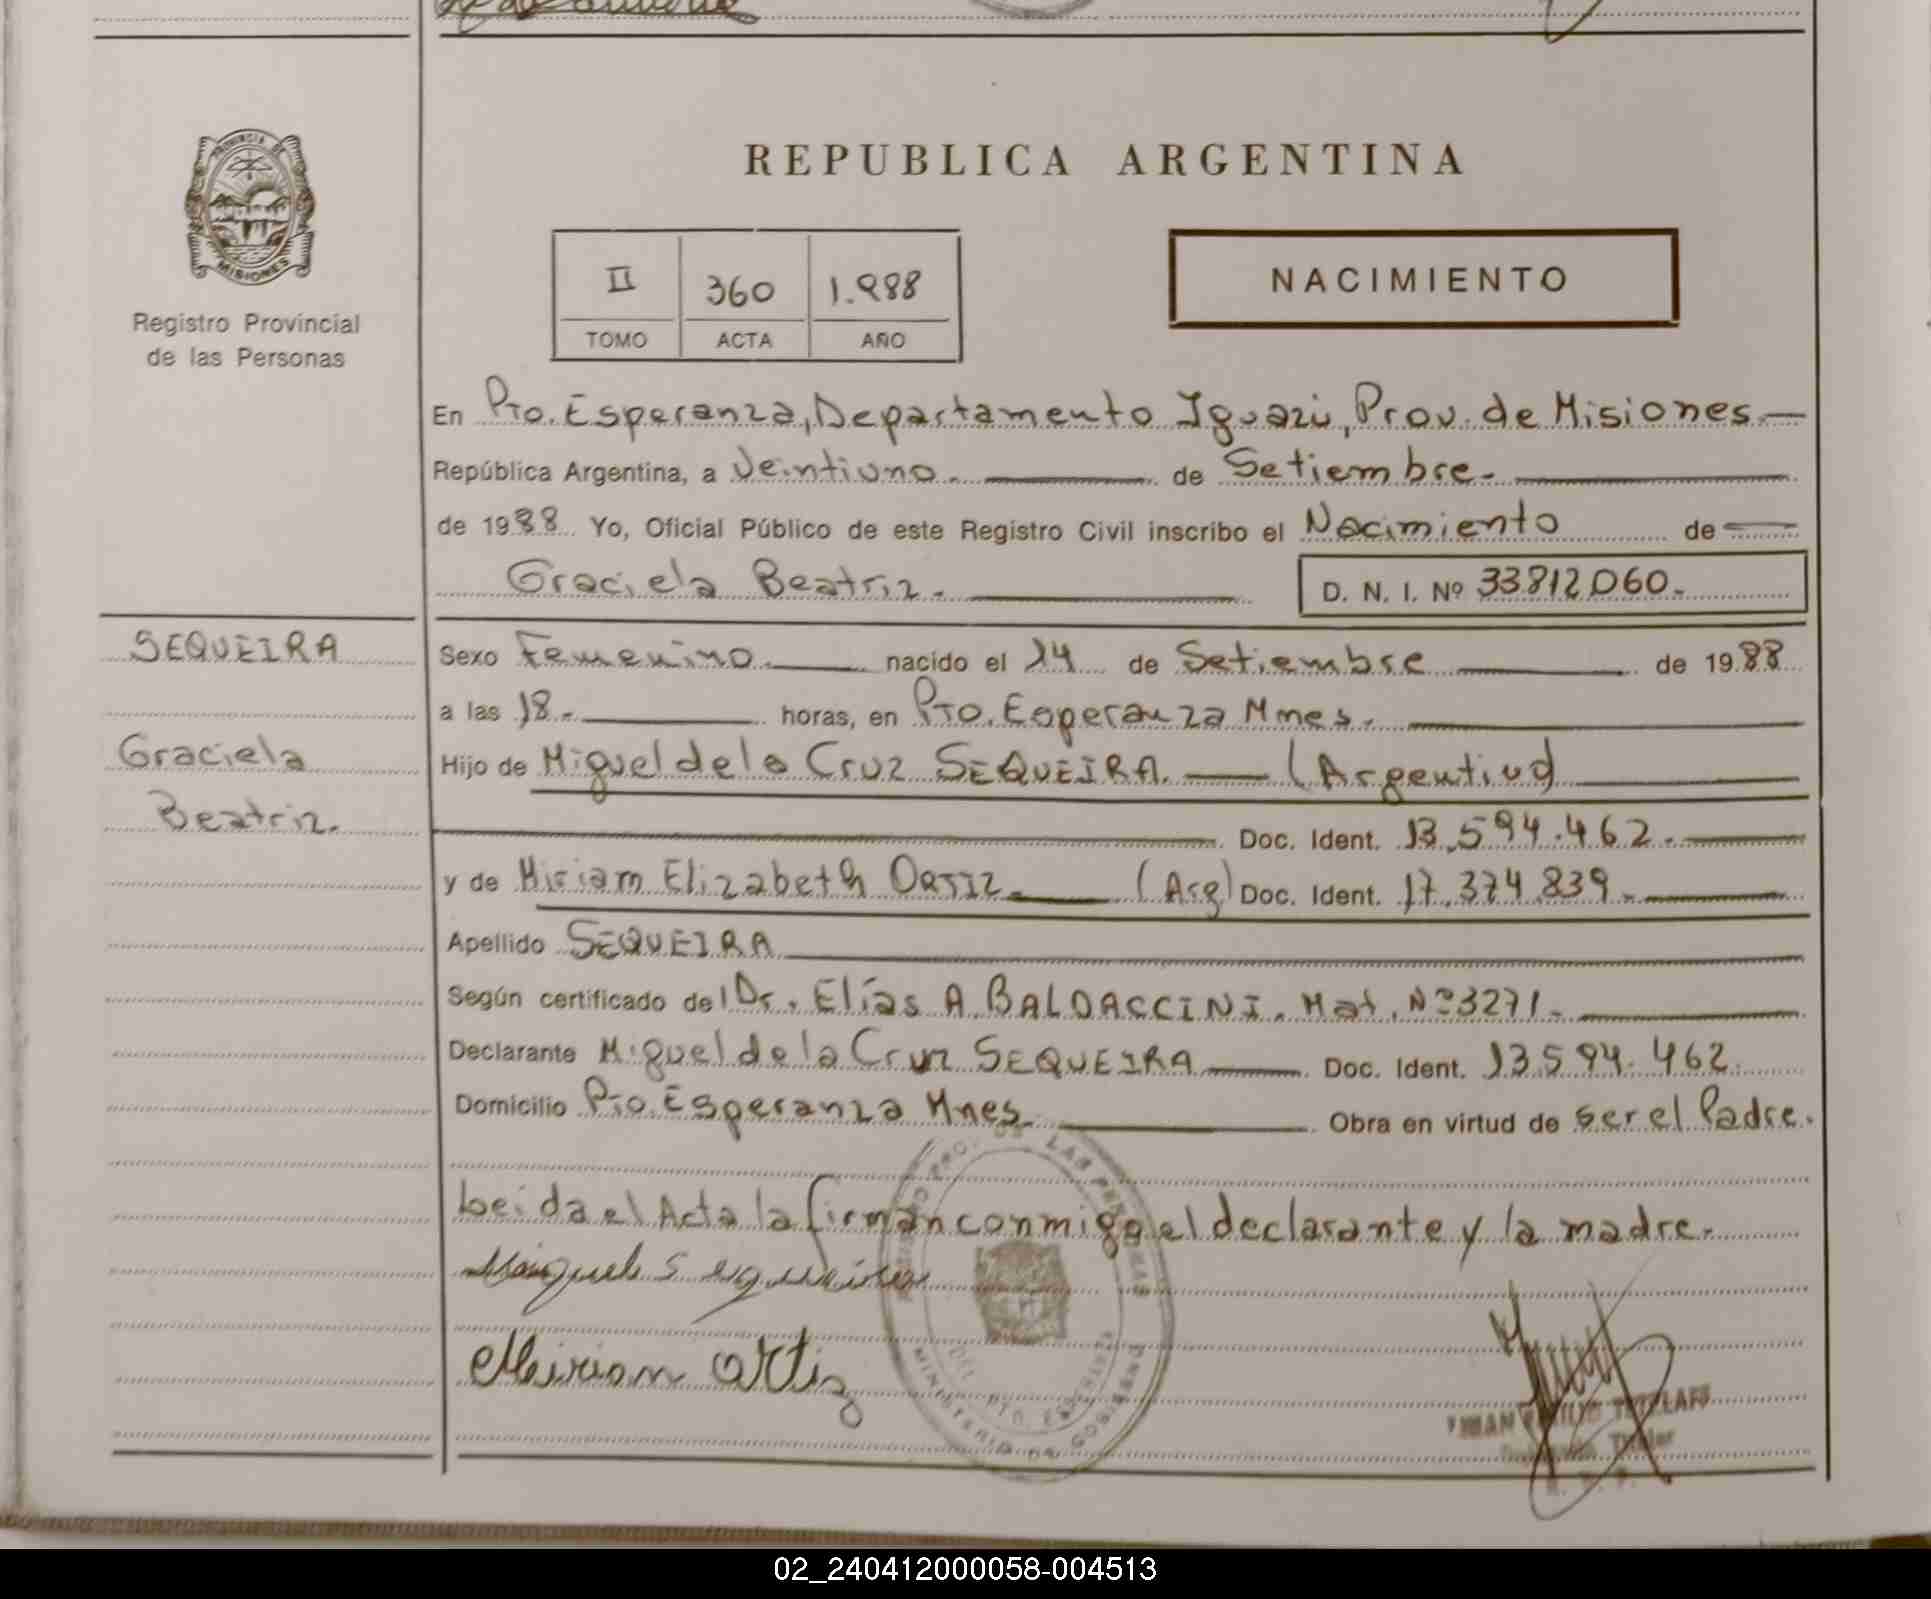 PROVINCIA DE
MISIONES
Registro Provincial
de las Personas
REPUBLICA ARGENTINA
II 360 1.988
TOMO ACTA AÑO
NACIMIENTO
En Pto. Esperanza, Departamento Iguazú, Prov. de Misiones.
República Argentina, a Veintiuno. de Setiembre.
de 1988 Yo, Oficial Público de este Registro Civil inscribo el Nacimiento de
Graciela Beatriz.
D. N. I. Nº 33812060.
SEQUEIRA
Graciela
Beatriz.
Sexo Femenino. nacido el 14 de Setiembre de 1988
a las 18. horas, en Pto. Esperanza Mnes.
Hijo de Miguel de la Cruz SEQUEIRA. (Argentino)
Doc. Ident. 13.594.462.
y de Miriam Elizabeth ORTIZ. (Arg) Doc. Ident. 17.374.839.
Apellido SEQUEIRA
Según certificado del Dr. Elías A. BALDACCINI. Mat. Nº 3271.
Declarante Miguel de la Cruz SEQUEIRA Doc. Ident. 13594.462.
Domicilio Pto. Esperanza Mnes. Obra en virtud de ser el Padre.
Leida el Acta la firman conmigo el declarante y la madre.
Miguel Sequeira
Miriam Ortiz
LAS PERSONAS
MINISTERIO DE GOBIERNO
Titular
02_240412000058-004513